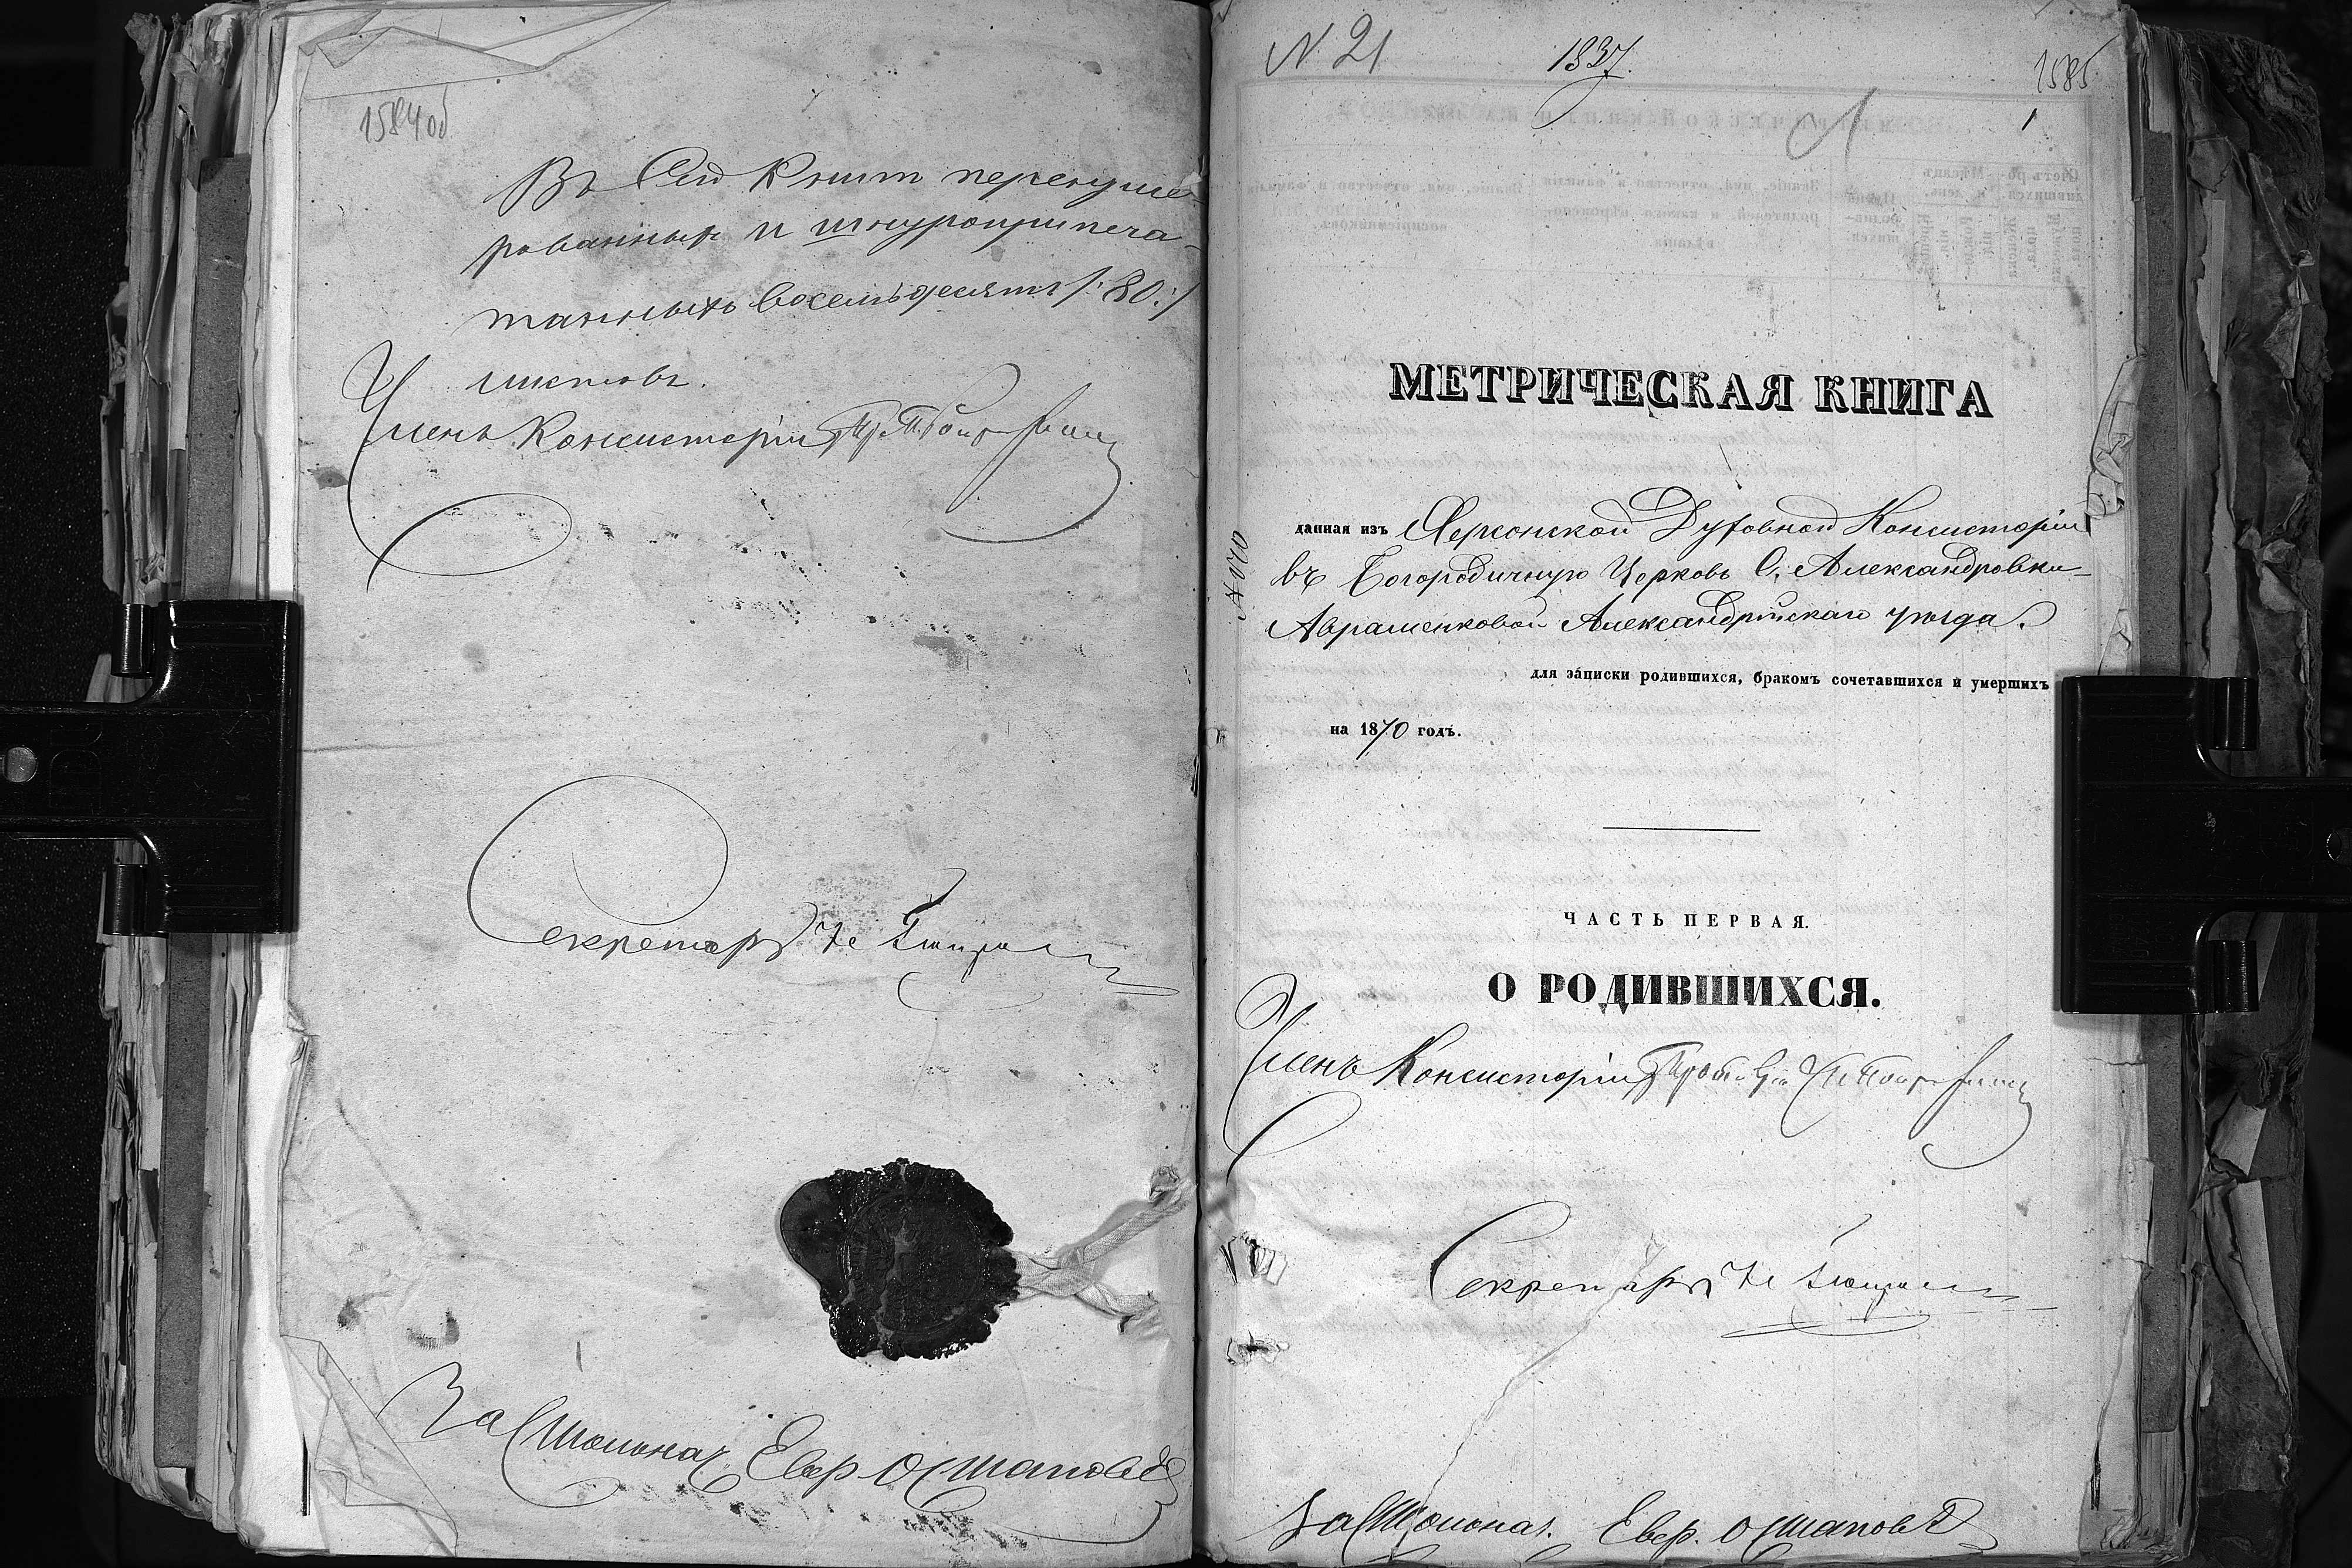 1584 об
Въ Сей Книги перенуме-
рованныхъ и шнуроприпеча-
танныхъ восемьдесятъ /:80:/
листовъ.
Членъ Консисторіи
Секретарь
За Столонач. Евер. Остаповъ
N. 21
1837.
1585
1
МЕТРИЧЕСКАЯ КНИГА
данная изъ Херсонской Духовной Консисторіи
въ Богородичную Церковь С. Александровки-
Авраменковой Александрійскаго уѣзда.
для записки родившихся, бракомъ сочетавшихся и умершихъ
на 1870 годъ.
ЧАСТЬ ПЕРВАЯ.
О РОДИВШИХСЯ.
Членъ Консисторіи
Секретарь
За Столонач. Евер. Остаповъ